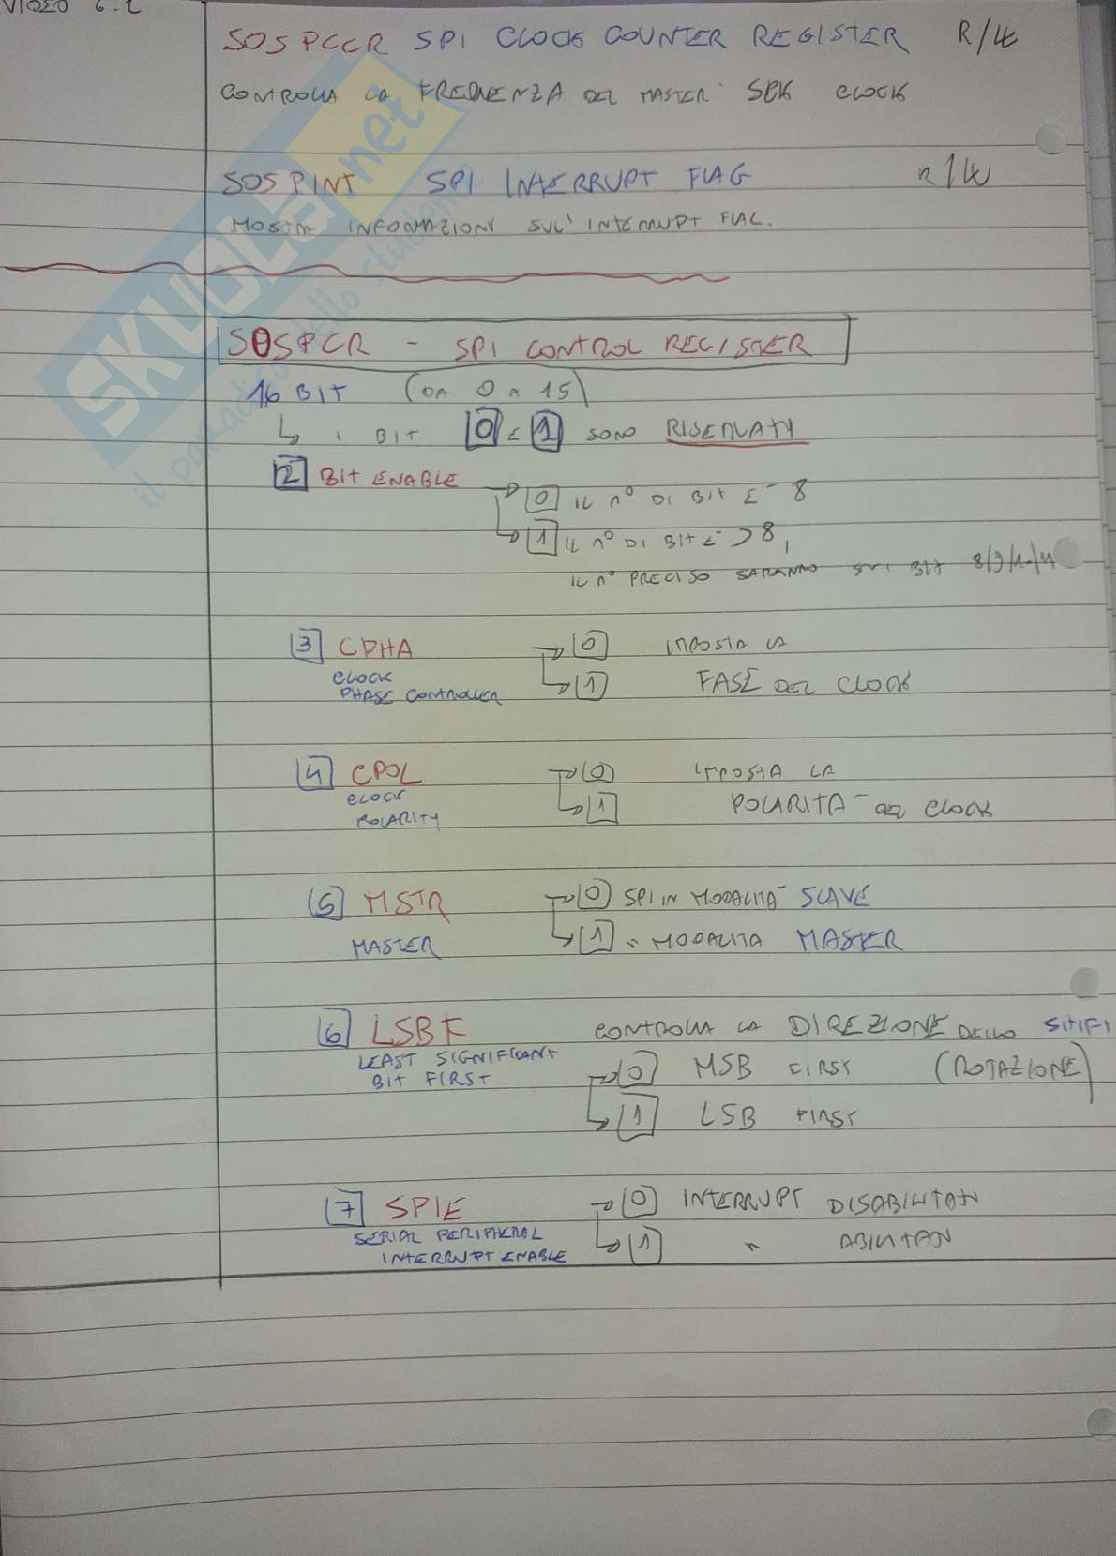 VIDEO 6.2
SOSPCCR SPI CLOCK COUNTER REGISTER R/W
CONTROLLA LA FREQUENZA DEL MASTER SCK CLOCK
SOSPINT SPI INTERRUPT FLAG R/W
MOSTRA INFORMAZIONI SULL'INTERRUPT FLAG.
SOSPCR - SPI CONTROL REGISTER
16 BIT (DA 0 A 15)
I BIT 0 E 1 SONO RISERVATI
2 BIT ENABLE
0 IL N° DI BIT È 8
1 IL N° DI BIT È > 8,
IL N° PRECISO SARANNO SUI BIT 8/9/10/11
3 CPHA 0 IMPOSTA LA
CLOCK 1 FASE DEL CLOCK
PHASE CONTROLLER
4 CPOL 0 IMPOSTA LA
CLOCK 1 POLARITÀ DEL CLOCK
POLARITY
5 MSTR 0 SPI IN MODALITÀ SLAVE
MASTER 1 " MODALITÀ MASTER
6 LSBF CONTROLLA LA DIREZIONE DELLO SHIFT
LEAST SIGNIFICANT 0 MSB FIRST (ROTAZIONE)
BIT FIRST
1 LSB FIRST
7 SPIE 0 INTERRUPT DISABILITATI
SERIAL PERIPHERAL 1 " ABILITATI
INTERRUPT ENABLE
SKUOLA.net
il paradiso dello studente